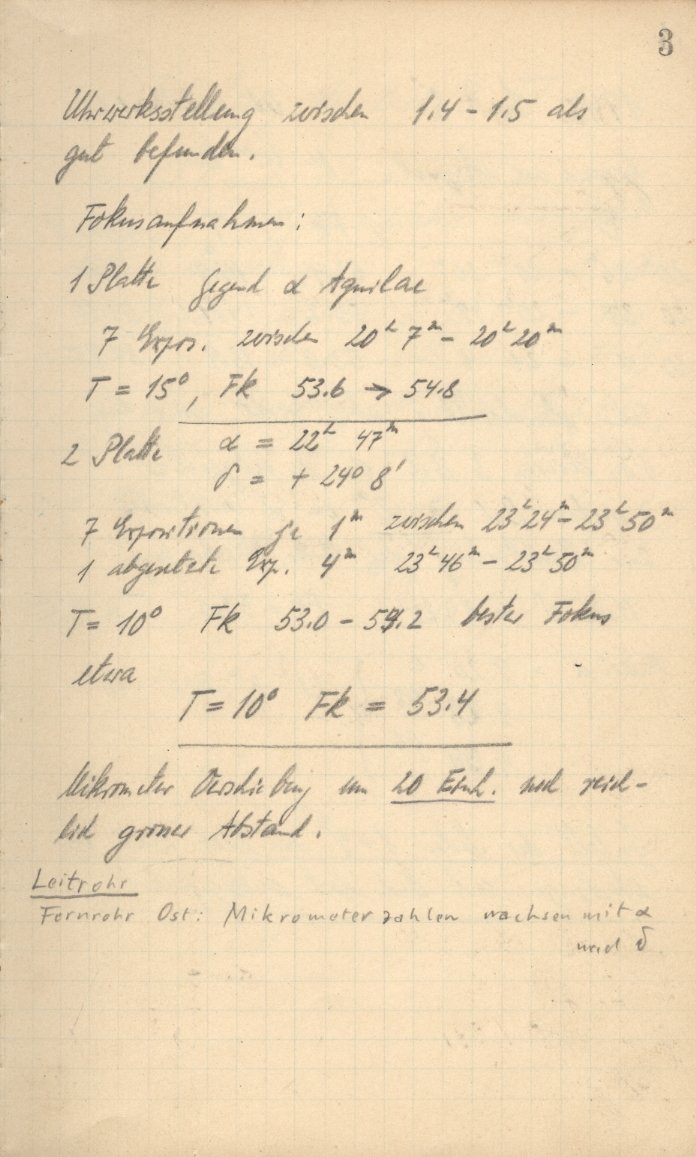 3
Uhrwerksstellung zwischen 1.4 - 1.5 als
gut befunden.
Fokusaufnahmen:
1 Platte Gegend α Aquilae
7 Expos. zwischen 20ʰ 7ᵐ - 20ʰ 20ᵐ
T = 15⁰, Fk 53.6 → 54.8
2 Platte α = 22ʰ 47ᵐ
δ = + 24⁰ 8'
7 Expositionen je 1ᵐ zwischen 23ʰ 24ᵐ - 23ʰ 50ᵐ
1 abgesetzte Exp. 4ᵐ 23ʰ 46ᵐ - 23ʰ 50ᵐ
T = 10⁰ Fk 53.0 - 54.2 bester Fokus
etwa
T = 10⁰ Fk = 53.4
Mikrometer Verschiebung um 20 Einh. noch reich-
lich grosser Abstand.
Leitrohr
Fernrohr Ost: Mikrometerzahlen wachsen mit α
und δ